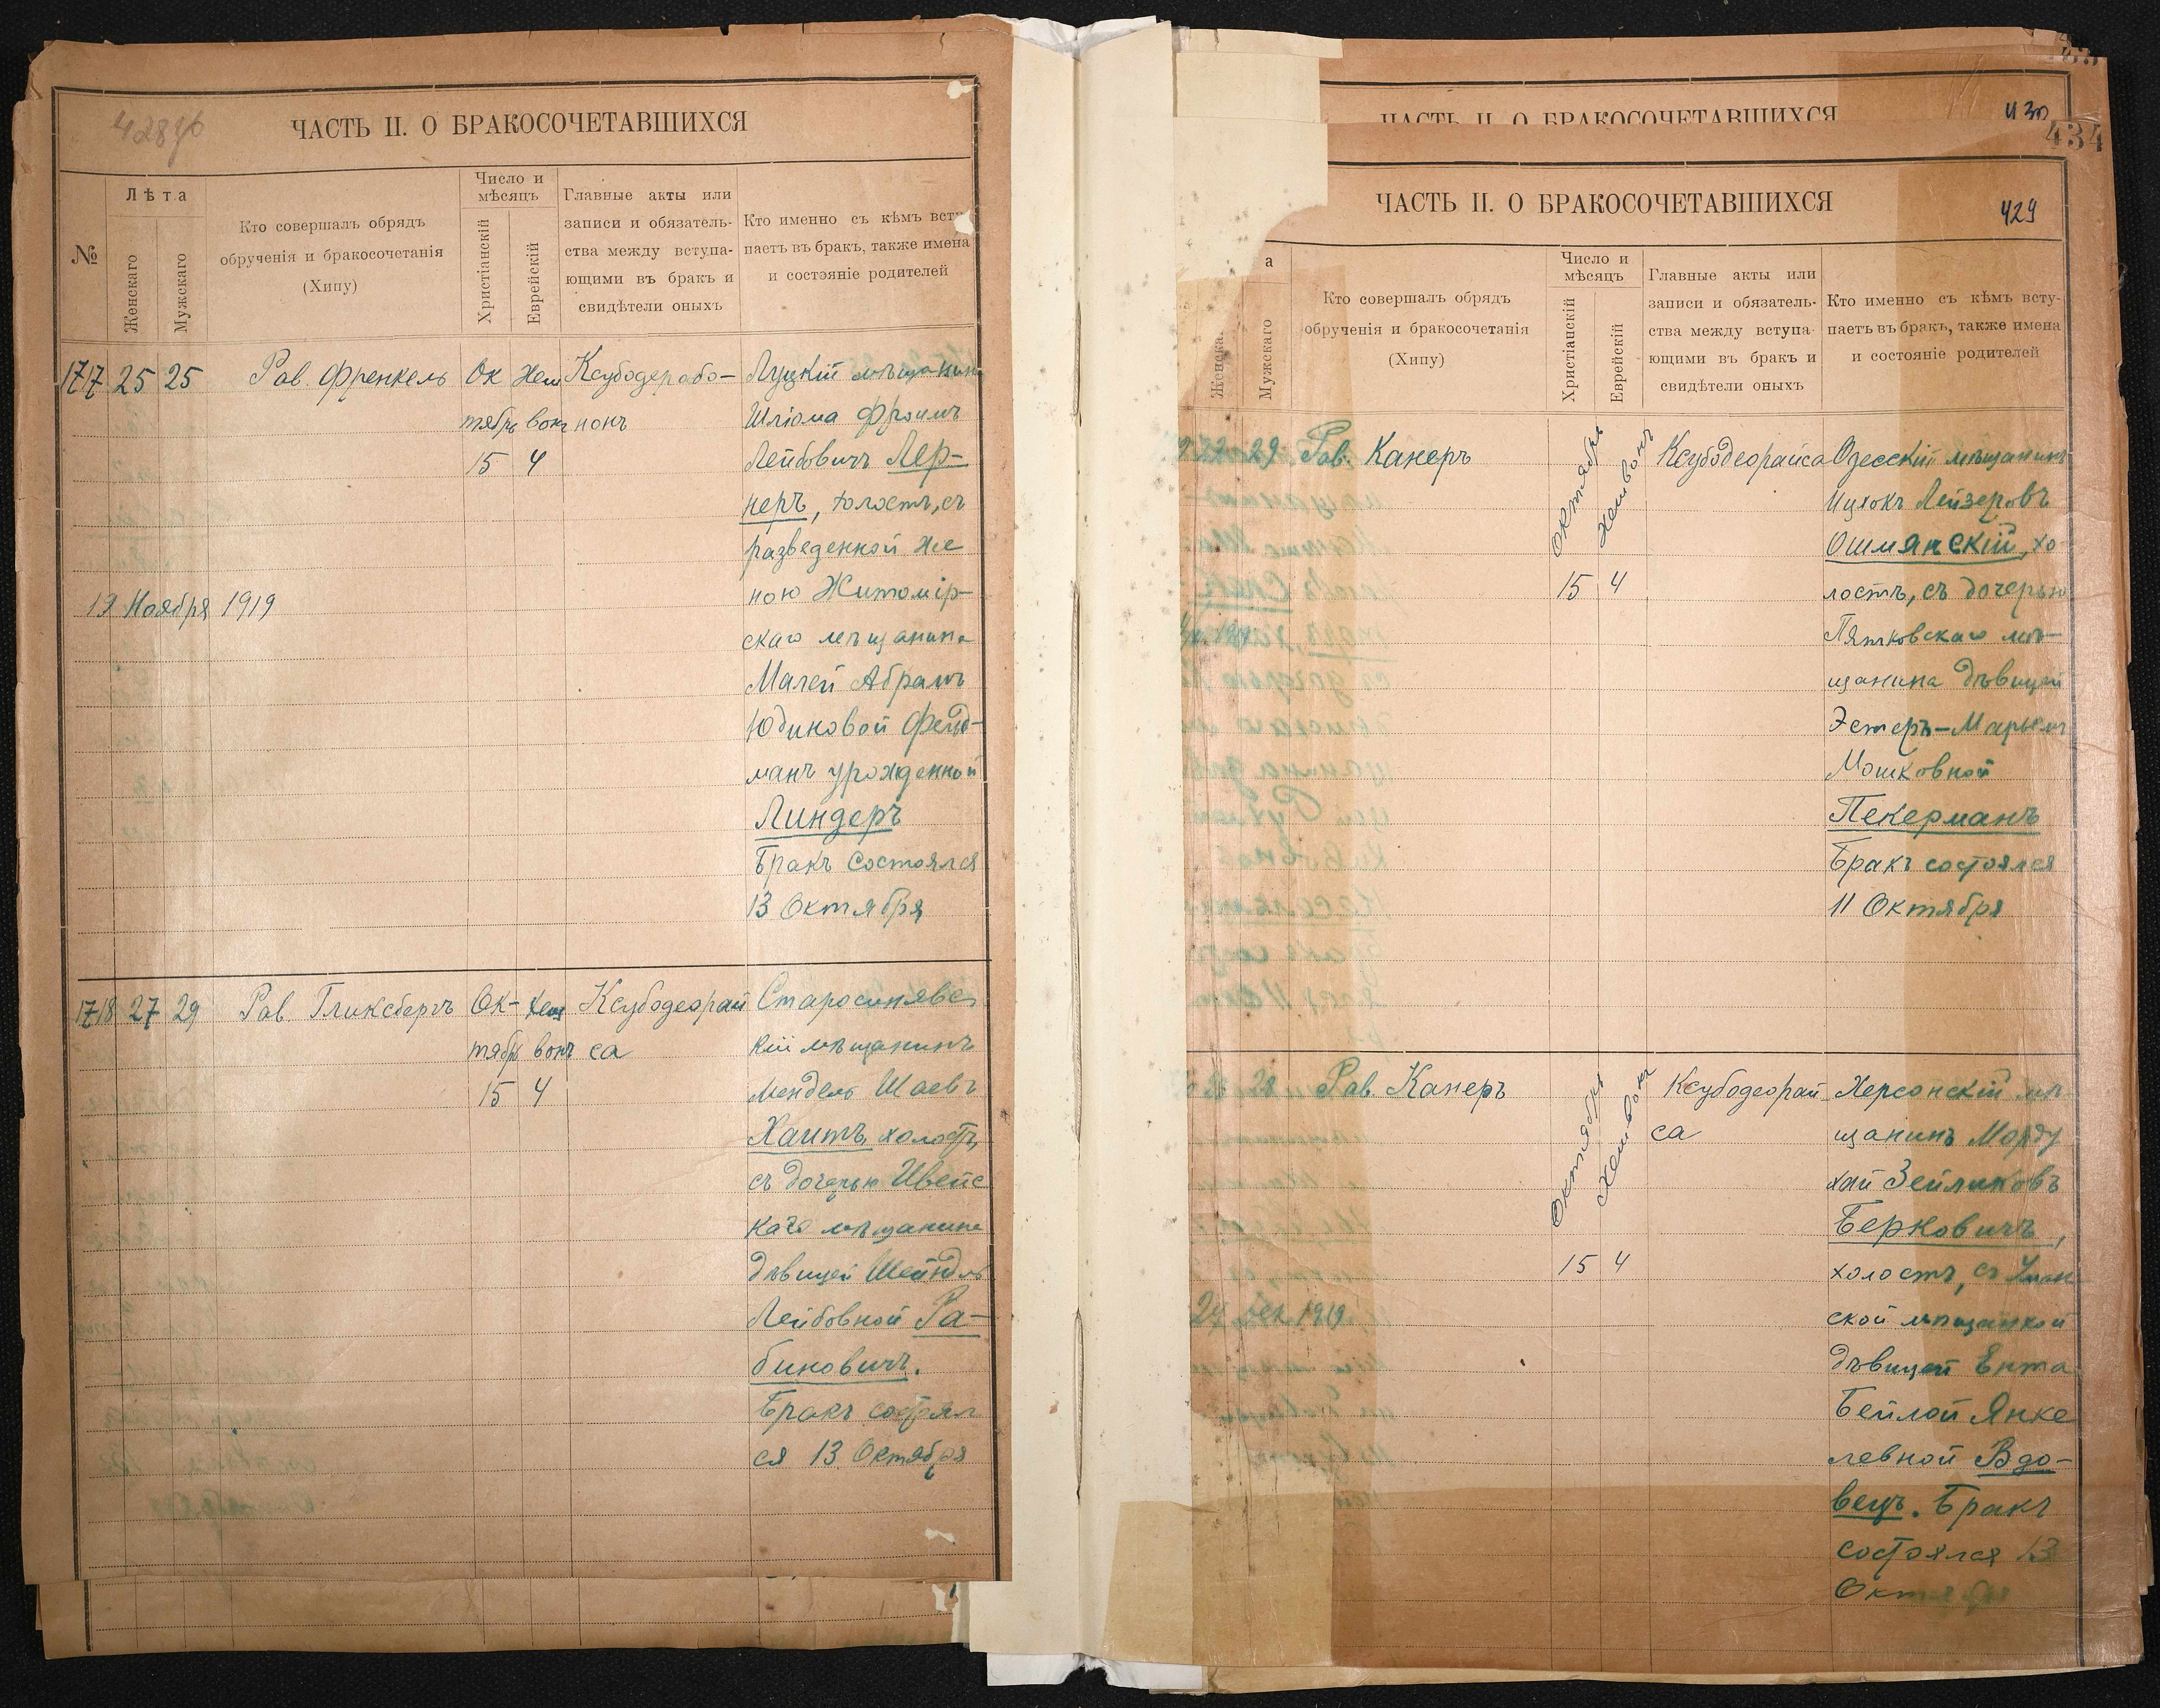 428об
ЧАСТЬ II. О БРАКОСОЧЕТАВШИХСЯ
№
Лѣта
Женскаго
Мужскаго
Кто совершалъ обрядъ
обрученія и бракосочетанія
(Хипу)
Число и
мѣсяцъ
Христіанскій
Еврейскій
Главные акты или
записи и обязатель-
ства между вступа-
ющими въ бракъ и
свидѣтели оныхъ
Кто именно съ кѣмъ всту
паетъ въ бракъ, также имена
и состояніе родителей
1717 25 25 Рав. Френкель
Ок
тябрь
15
Хеш
вонъ
4
Ксубодерабо-
нонъ
Луцкій мѣщанин
Шліома Фроимъ
Лейбовичъ Лер-
неръ, холостъ, съ
разведенной же
ною Житомір-
скаго мѣщанина
Малей Абрамъ
Юдиновой Фельд-
манъ урожденной
Линдеръ
Бракъ состоялся
13 Октября
19 Ноября 1919
1718 27 29 Рав. Гликсбергъ
Ок-
тябрь
15
Хеш
вонъ
4
Ксубодеорай
са
Старосинявс
кій мѣщанинъ
Мендель Шаевъ
Хаитъ, холостъ,
съ дочерью Ивенс
каго мѣщанина
дѣвицей Шейндль
Лейбовной Ра-
биновичъ.
Бракъ состоял
ся 13 Октября
ЧАСТЬ II. О БРАКОСОЧЕТАВШИХСЯ
430
434
ЧАСТЬ II. О БРАКОСОЧЕТАВШИХСЯ
429
а
Женска
Мужскаго
Кто совершалъ обрядъ
обрученія и бракосочетанія
(Хипу)
Число и
мѣсяцъ
Христіанскій
Еврейскій
Главные акты или
записи и обязатель-
ства между вступа-
ющими въ бракъ и
свидѣтели оныхъ
Кто именно съ кѣмъ всту-
паетъ въ бракъ, также имена
и состояніе родителей
22 29 Рав. Канеръ
Октябрь
15
Хешвонъ
4
Ксубодеорайса
Одесскій мѣщанинъ
Ицхокъ Лейзеровъ
Ошмянскій, хо
лостъ, съ дочерью
Пятковскаго мѣ-
щанина дѣвицей
Эстеръ-Марьем
Мошковной
Пекерманъ
Бракъ состоялся
11 Октября
28 Рав. Канеръ
Октябрь
15
Хешвонъ
4
Ксубодеорай
са
Херсонскій мѣ
щанинъ Морду
хай Зейликовъ
Берковичъ,
холостъ, съ Уман
ской мѣщанкой
дѣвицей Ента
Бейлой Янке
левной Вдо-
вецъ. Бракъ
состоялся 13
Октября
24 Дек 1919